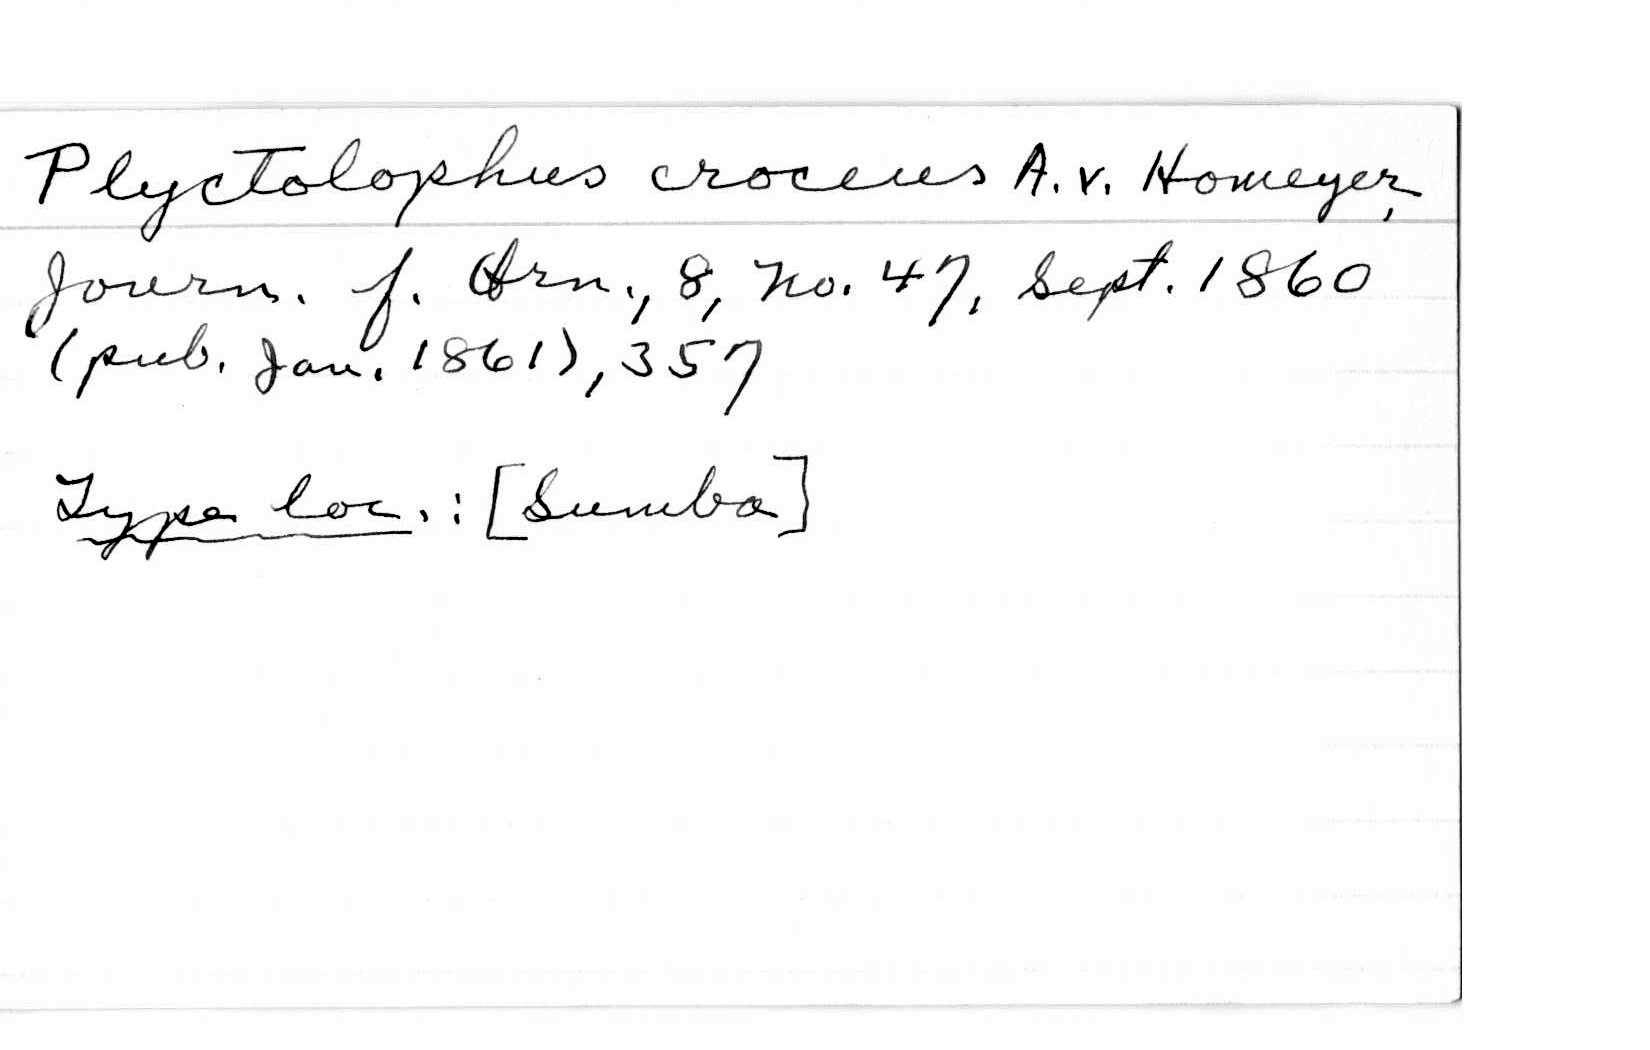 Plyctolophus croceus A. v. Homeyer,
Journ. f. Orn., 8, no. 47, Sept. 1860
(pub. Jan. 1861), 357
Type loc.: [Sumba]